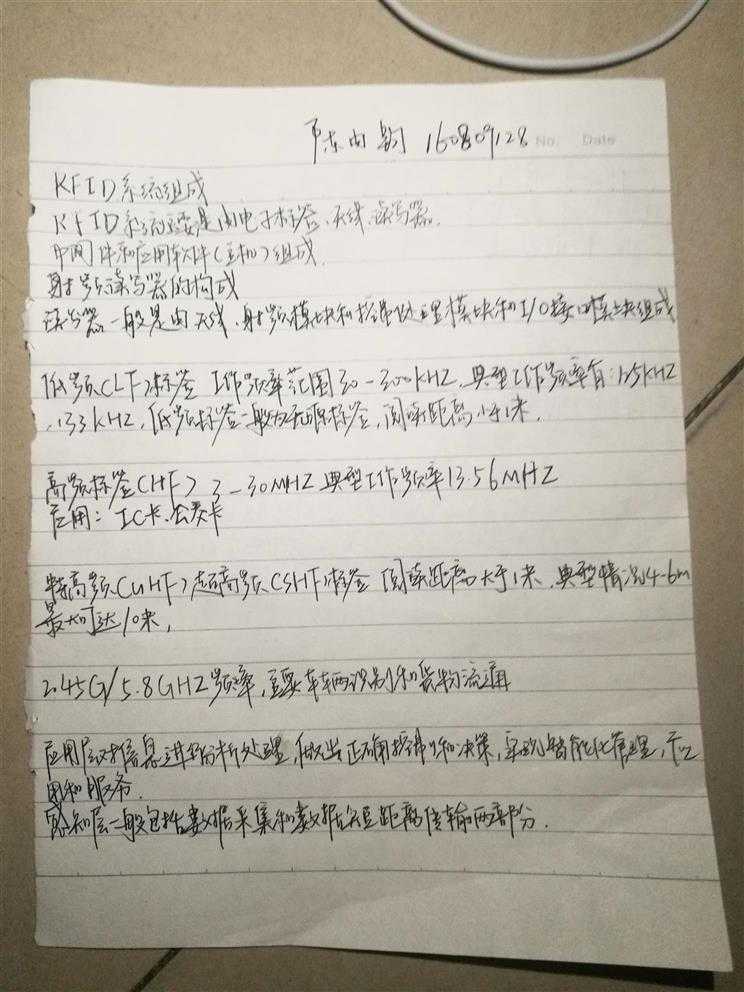 陈由钧 160809128 No. Date
RFID系统组成
RFID系统主要是由电子标签、天线、读写器、
中间件和应用软件(主机)组成.
射频读写器的构成
读写器一般是由天线、射频模块和控制处理模块和I/O接口模块组成
低频(LF)标签 工作频率范围30-300KHZ,典型工作频率有:125KHZ
、133KHZ,低频标签一般为无源标签,阅读距离小于1米.
高频标签(HF) 3-30MHZ 典型工作频率13.56MHZ
应用: IC卡、公交卡
特高频(UHF)超高频(SHF)标签 阅读距离大于1米,典型情况4-6m
最大可达10米,
2.45G/5.8GHZ频率,主要车辆识别和货物流通
应用层对信息进行分析处理,做出正确控制和决策,实现智能化管理,应
用和服务.
感知层一般包括数据采集和数据短距离传输两部分.